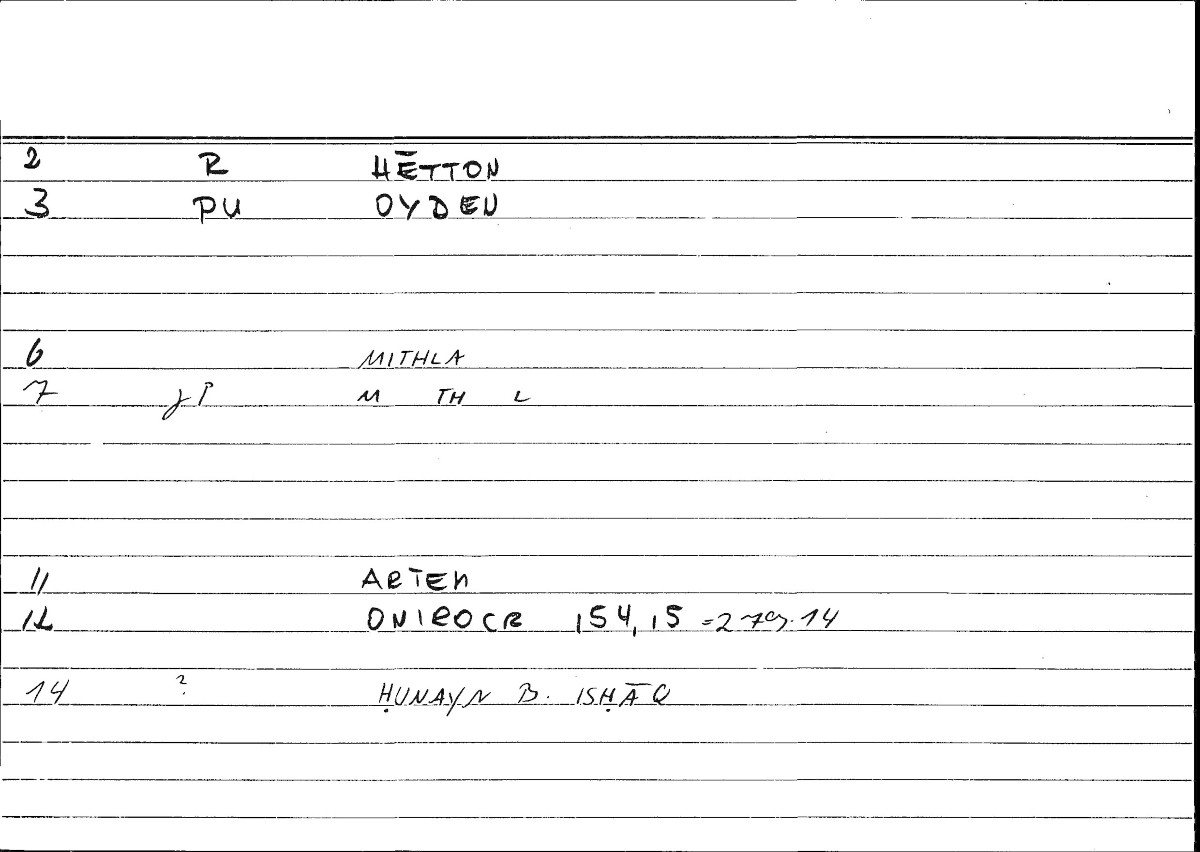 2 R HĒTTON
3 PU OYDEN
6 MITHLA
7 M TH L
11 ARTEM
12 ONIROCR 154,15 = 279.14
14 ? ḤUNAYN B. ISḤĀQ